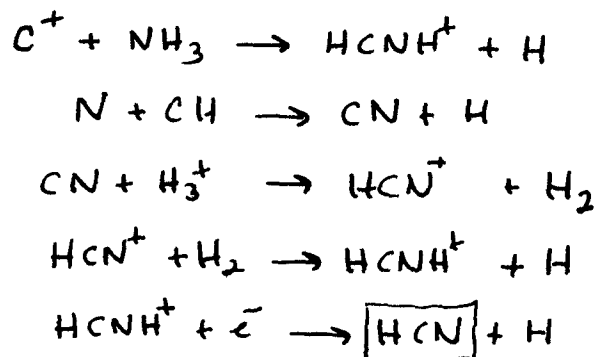 C⁺ + NH₃ → HCNH⁺ + H
N + CH → CN + H
CN + H₃⁺ → HCN⁺ + H₂
HCN⁺ + H₂ → HCNH⁺ + H
HCNH⁺ + e⁻ → HCN + H